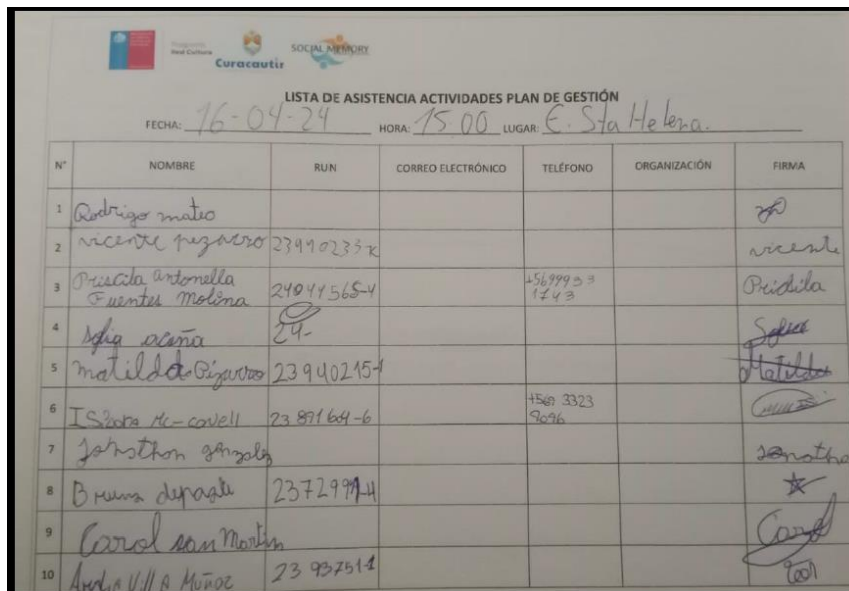 Red Cultura
Curacautín
SOCIAL MEMORY
LISTA DE ASISTENCIA ACTIVIDADES PLAN DE GESTIÓN
FECHA: 16-04-24 HORA: 15.00 LUGAR: E. Sta Helena.
N° NOMBRE RUN CORREO ELECTRÓNICO TELÉFONO ORGANIZACIÓN FIRMA
1 Rodrigo mateo
2 vicente pezarro 23990235K vicente
3 Priscila Antonella
Fuentes Molina 24041565-4 +5699933
1743 Pricila
4 Sofia acuña 24-
5 matilda Pizarro 23940215-1 Matilda
6 Mc-cavell 23 891 609-6 +569 3323
9096
7 gonzalez
8 Bruna 
9 Carol san Martin Carol
10 Villa Muñoz 23 937511